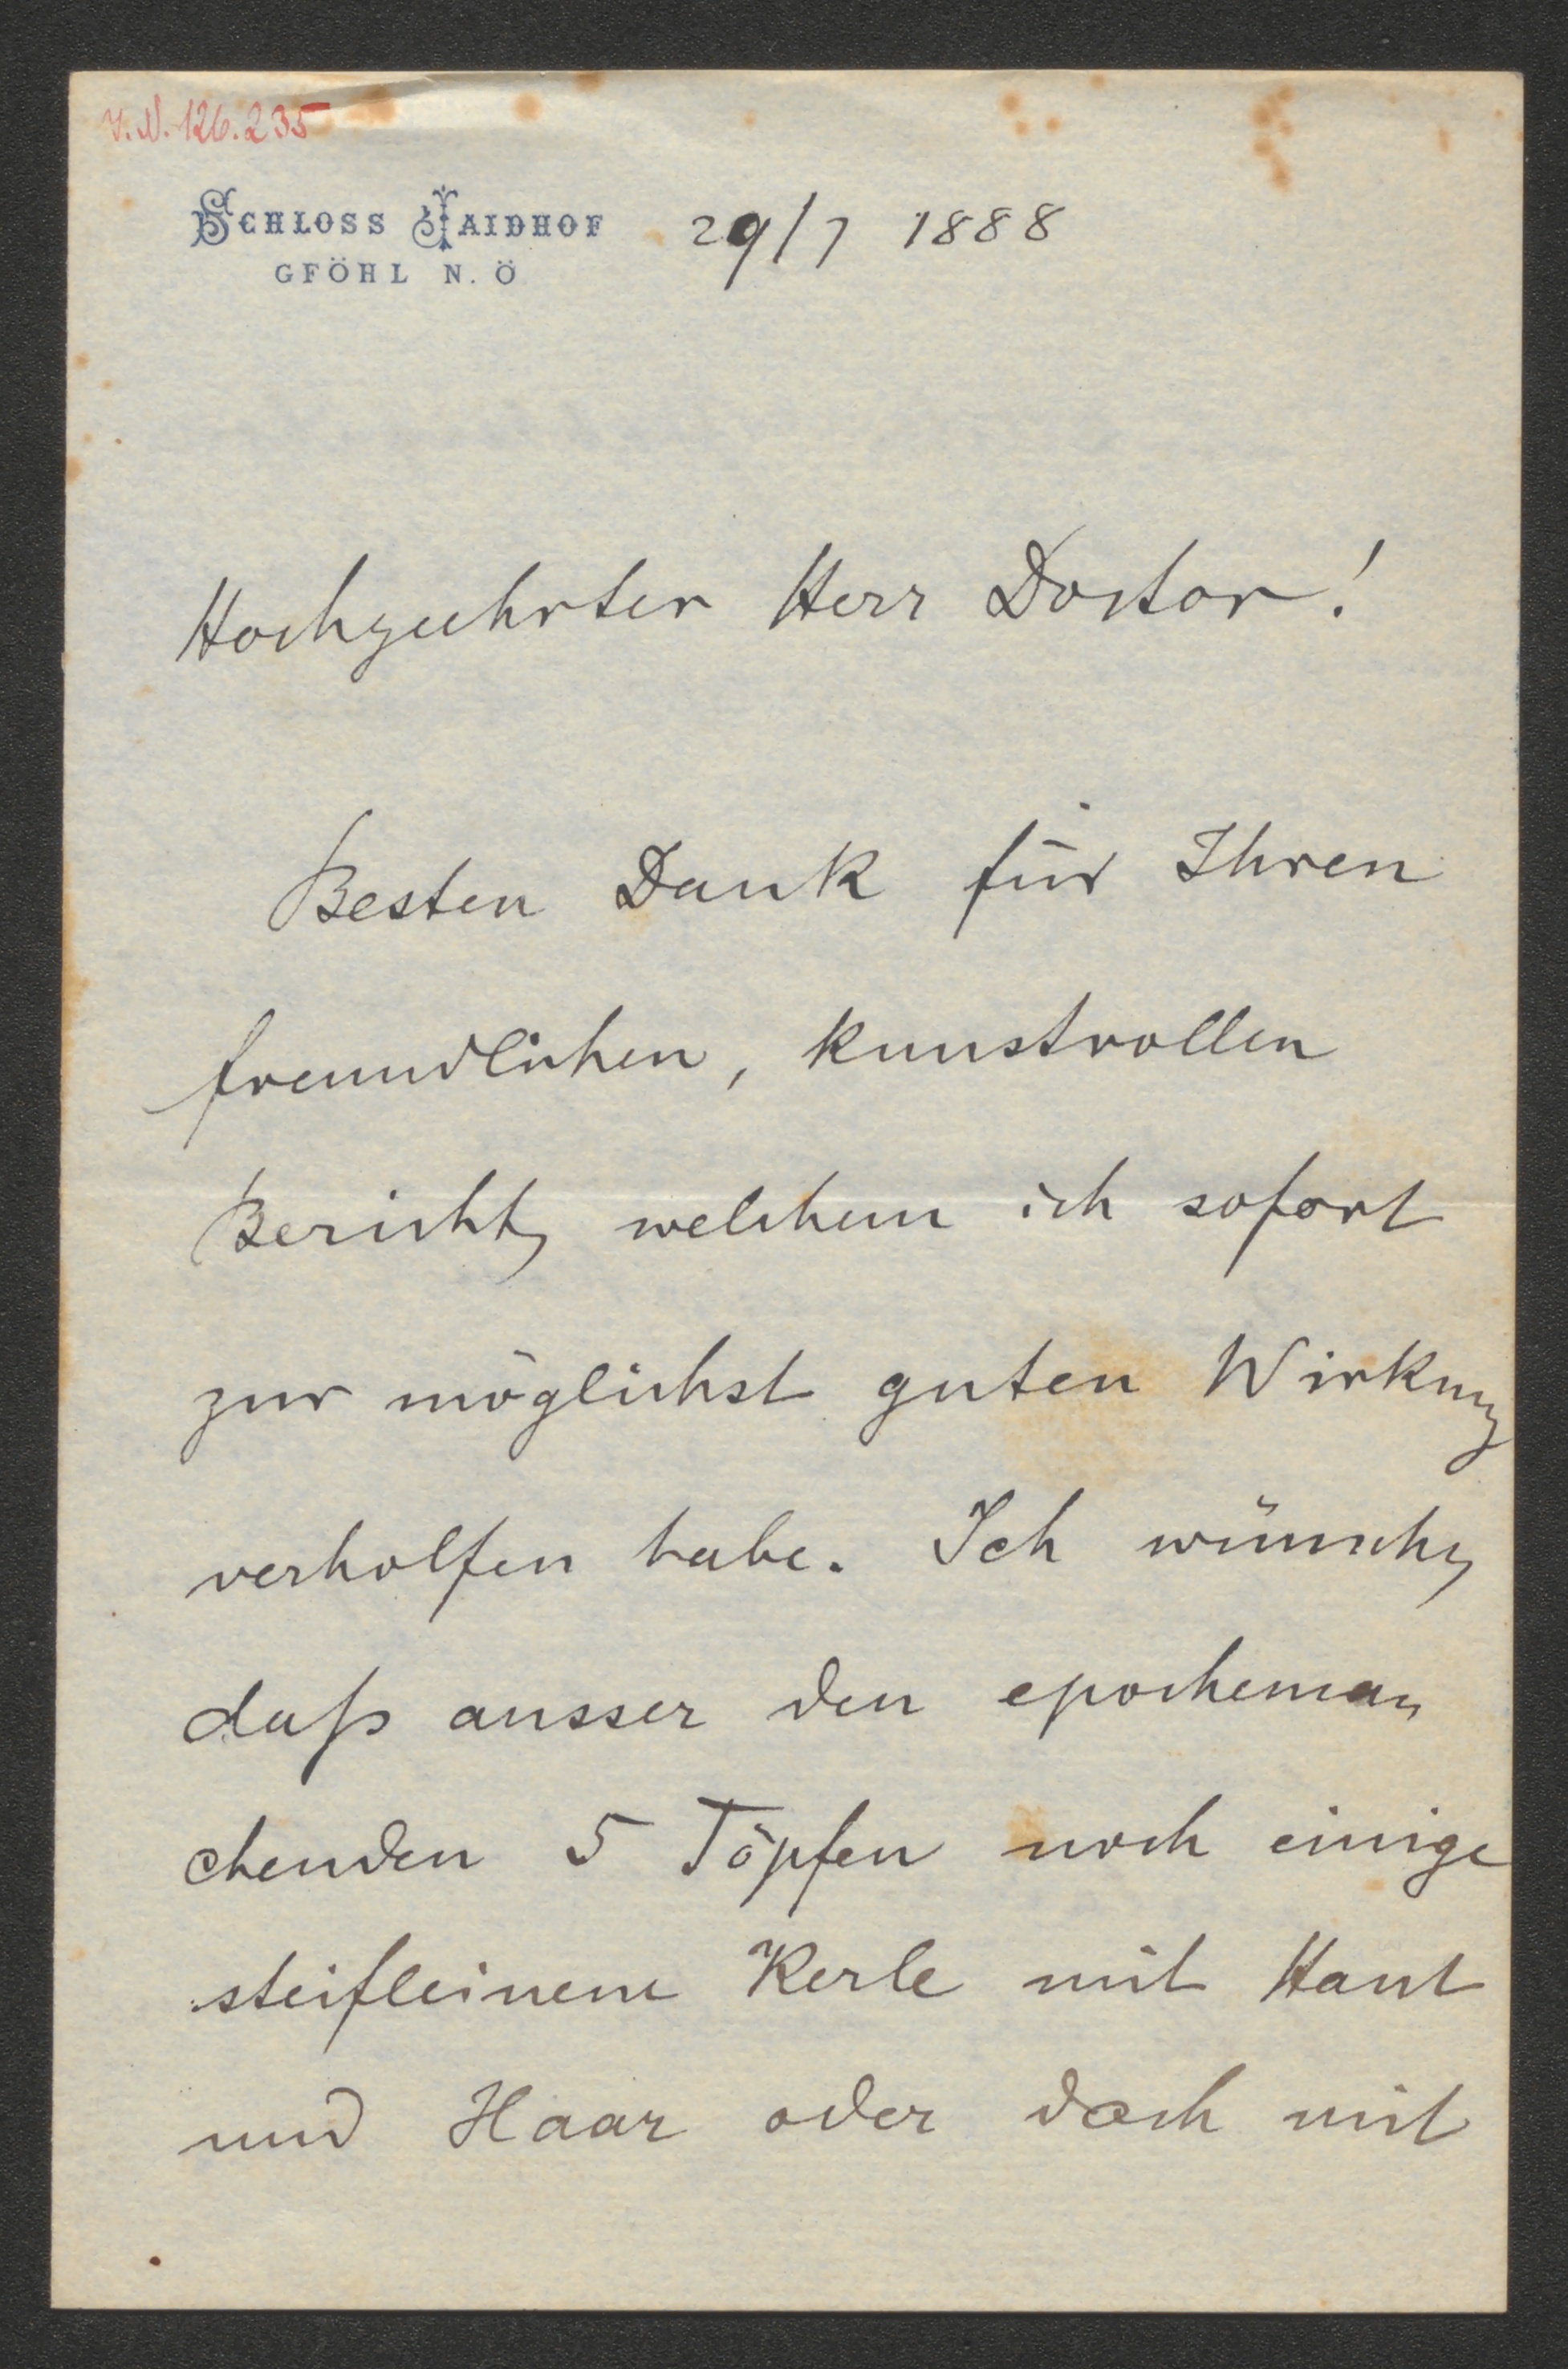 I.N. 126.235
SCHLOSS JAIDHOF 29/7 1888
GFÖHL N. Ö
Hochgeehrter Herr Doctor!
Besten Dank für Ihren
freundlichen, kunstvollen
Bericht, welchem ich sofort
zur möglichst guten Wirkung
verholfen habe. Ich wünsche,
daß ausser den epochema-
chenden 5 Töpfen noch einige
steifleinene Kerle mit Haut
und Haar oder doch mit